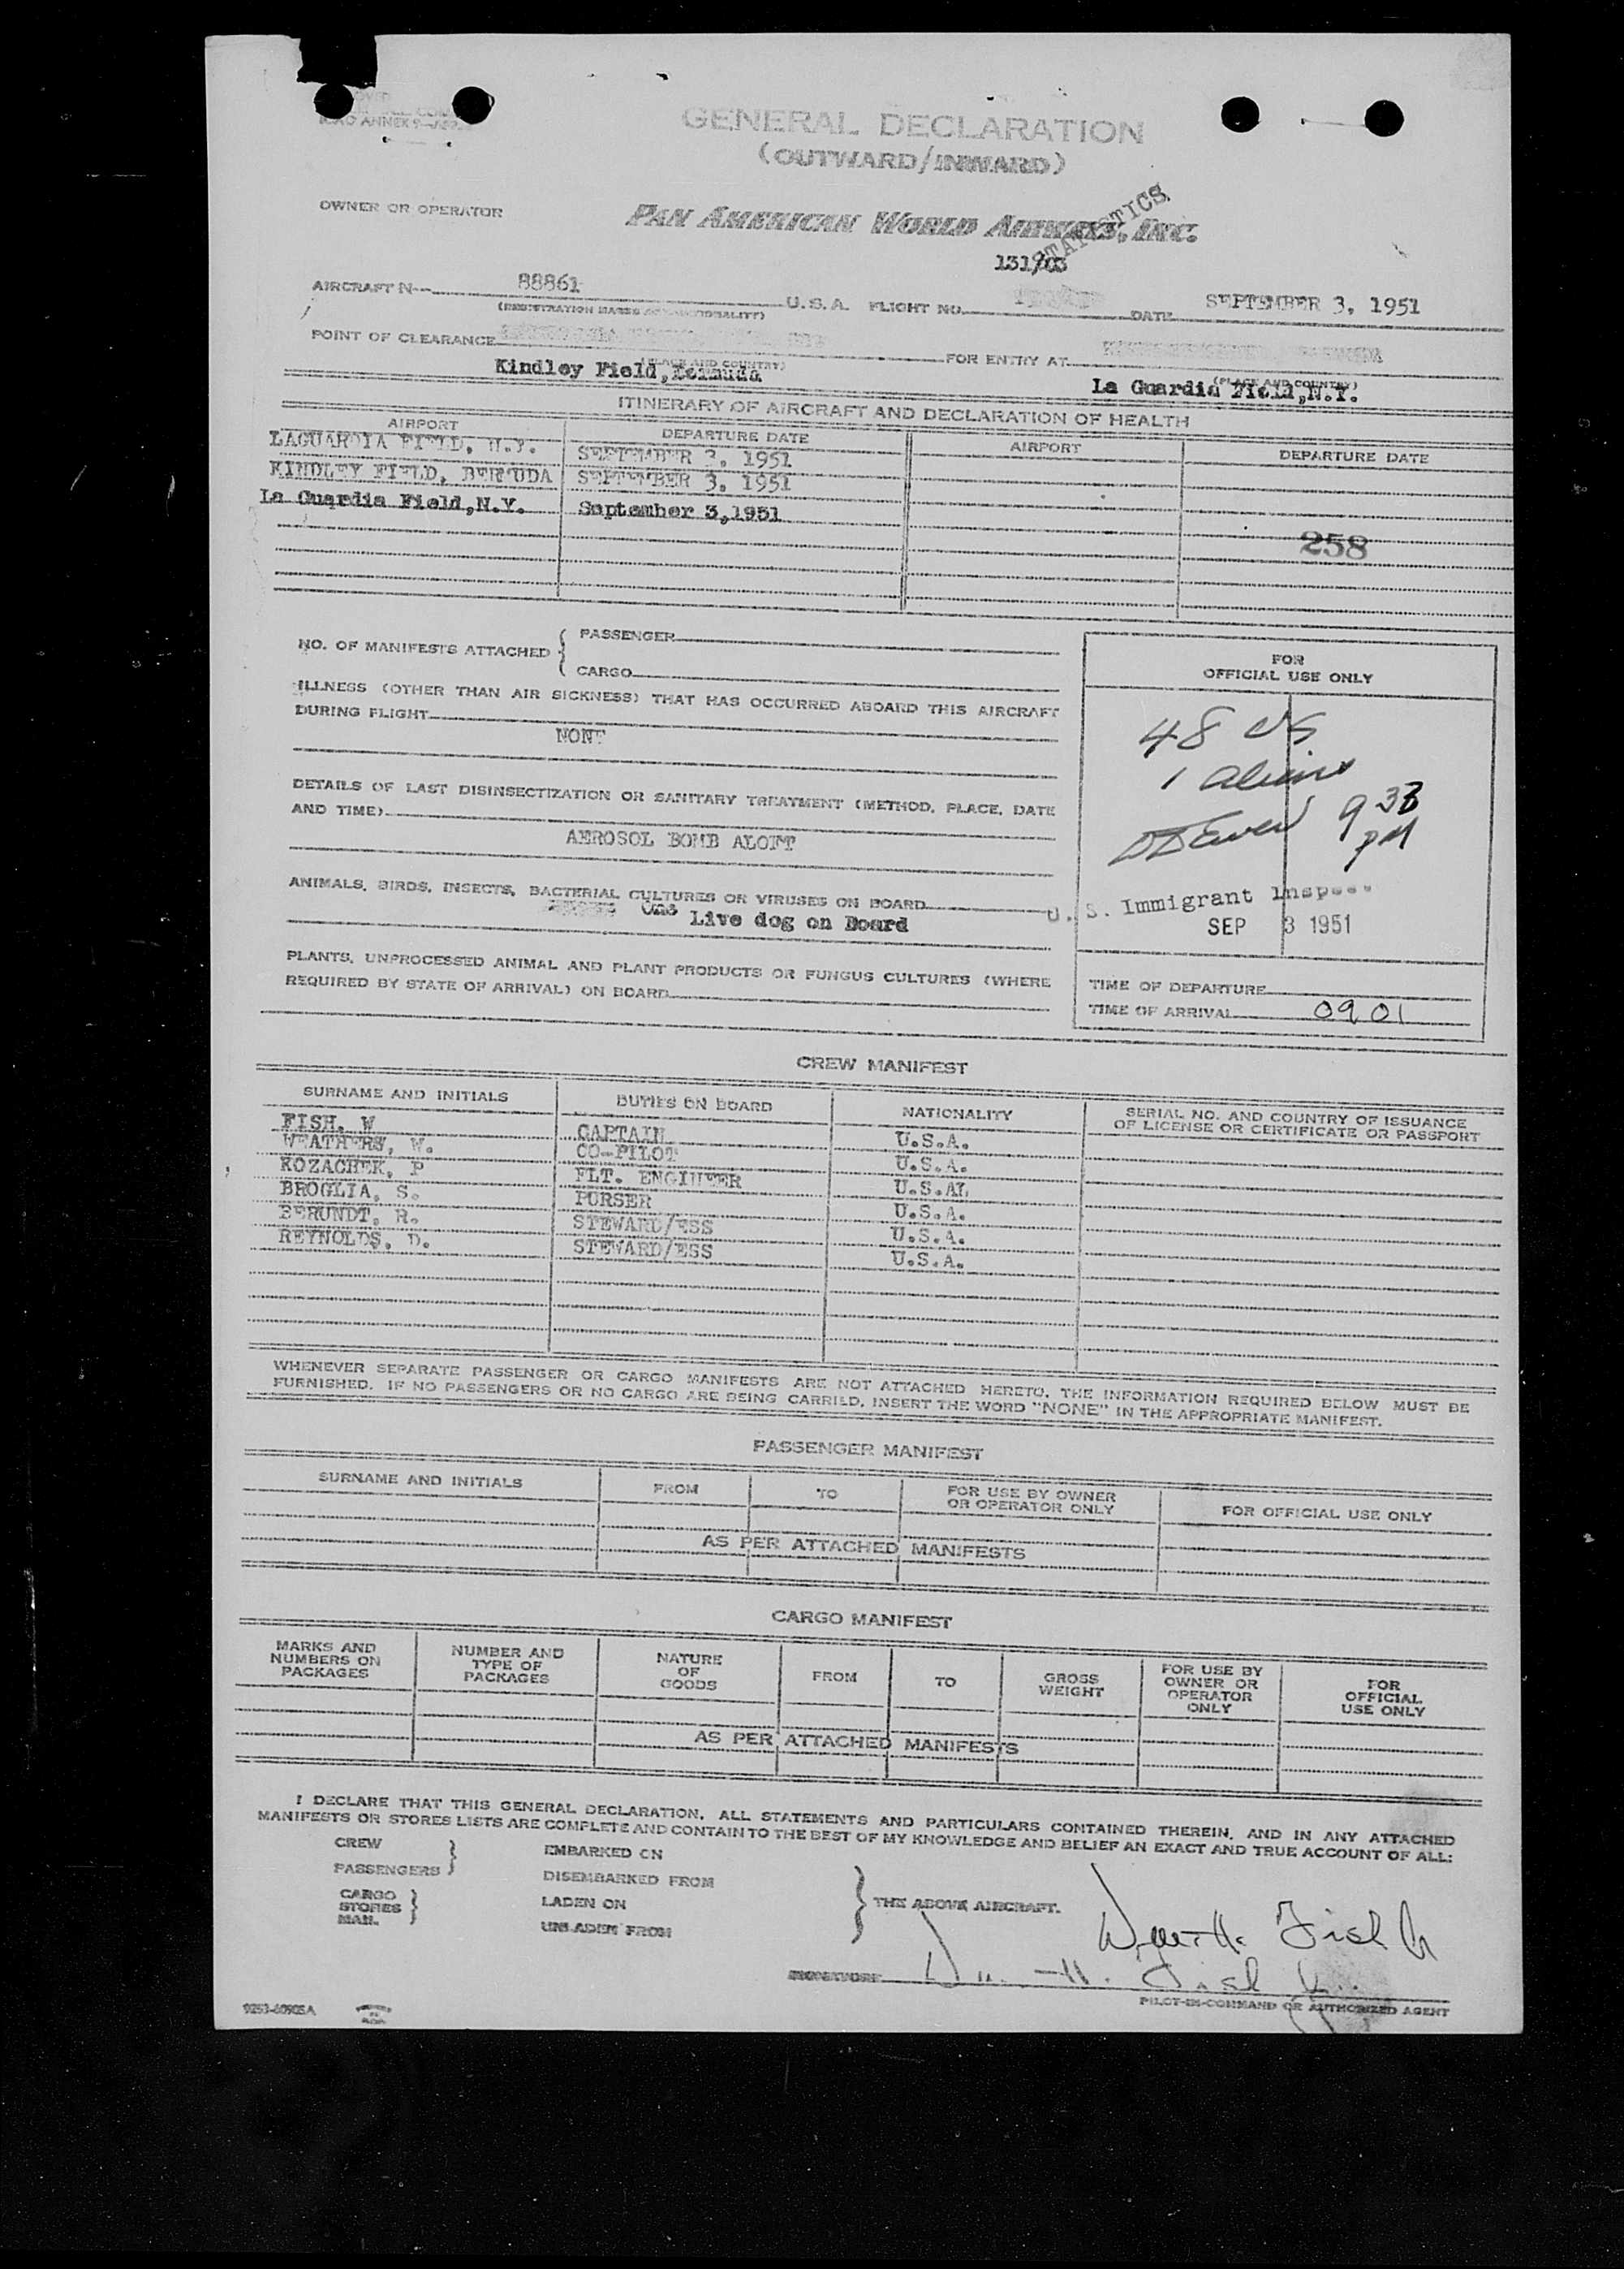 ICAO ANNEX 9
GENERAL DECLARATION
(OUTWARD/INWARD)
OWNER OR OPERATOR
PAN AMERICAN WORLD AIRWAYS, INC.
STATISTICS
131/03
AIRCRAFT N 88861 U.S.A. FLIGHT NO. DATE SEPTEMBER 3, 1951
(REGISTRATION MARKS AND NATIONALITY)
POINT OF CLEARANCE FOR ENTRY AT
(PLACE AND COUNTRY) (PLACE AND COUNTRY)
Kindley Field, Bermuda La Guardia Field, N.Y.
ITINERARY OF AIRCRAFT AND DECLARATION OF HEALTH
AIRPORT DEPARTURE DATE AIRPORT DEPARTURE DATE
LAGUARDIA FIELD, N.Y. SEPTEMBER 3, 1951
KINDLEY FIELD, BERMUDA SEPTEMBER 3, 1951
La Guardia Field, N.Y. September 3, 1951
258
NO. OF MANIFESTS ATTACHED
PASSENGER
CARGO
ILLNESS (OTHER THAN AIR SICKNESS) THAT HAS OCCURRED ABOARD THIS AIRCRAFT
DURING FLIGHT
NONE
DETAILS OF LAST DISINSECTIZATION OR SANITARY TREATMENT (METHOD, PLACE, DATE
AND TIME)
AEROSOL BOMB ALOFT
ANIMALS, BIRDS, INSECTS, BACTERIAL CULTURES OR VIRUSES ON BOARD
One Live dog on Board
PLANTS, UNPROCESSED ANIMAL AND PLANT PRODUCTS OR FUNGUS CULTURES (WHERE
REQUIRED BY STATE OF ARRIVAL) ON BOARD
FOR
OFFICIAL USE ONLY
48 US
1 alien
9 33
PM
U.S. Immigrant Inspector
SEP 3 1951
TIME OF DEPARTURE
TIME OF ARRIVAL 0901
CREW MANIFEST
SURNAME AND INITIALS DUTIES ON BOARD NATIONALITY SERIAL NO. AND COUNTRY OF ISSUANCE
OF LICENSE OR CERTIFICATE OR PASSPORT
FISH, W CAPTAIN U.S.A.
WEATHERS, W. CO-PILOT U.S.A.
KOZACHEK, P FLT. ENGINEER U.S.AL
BROGLIA, S. PURSER U.S.A.
BERUNDT, R. STEWARD/ESS U.S.A.
REYNOLDS, D. STEWARD/ESS U.S.A.
WHENEVER SEPARATE PASSENGER OR CARGO MANIFESTS ARE NOT ATTACHED HERETO, THE INFORMATION REQUIRED BELOW MUST BE
FURNISHED. IF NO PASSENGERS OR NO CARGO ARE BEING CARRIED, INSERT THE WORD "NONE" IN THE APPROPRIATE MANIFEST.
PASSENGER MANIFEST
SURNAME AND INITIALS FROM TO FOR USE BY OWNER
OR OPERATOR ONLY FOR OFFICIAL USE ONLY
AS PER ATTACHED MANIFESTS
CARGO MANIFEST
MARKS AND
NUMBERS ON
PACKAGES
NUMBER AND
TYPE OF
PACKAGES
NATURE
OF
GOODS
FROM
TO
GROSS
WEIGHT
FOR USE BY
OWNER OR
OPERATOR
ONLY
FOR
OFFICIAL
USE ONLY
AS PER ATTACHED MANIFESTS
I DECLARE THAT THIS GENERAL DECLARATION, ALL STATEMENTS AND PARTICULARS CONTAINED THEREIN, AND IN ANY ATTACHED
MANIFESTS OR STORES LISTS ARE COMPLETE AND CONTAIN TO THE BEST OF MY KNOWLEDGE AND BELIEF AN EXACT AND TRUE ACCOUNT OF ALL:
CREW
PASSENGERS
CARGO
STORES
MAIL
EMBARKED ON
DISEMBARKED FROM
LADEN ON
UNLADEN FROM
THE ABOVE AIRCRAFT.
SIGNATURE
PILOT-IN-COMMAND OR AUTHORIZED AGENT